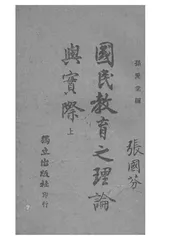 國民教育之理論
與實際 上
張國芬
獨立出版社印行